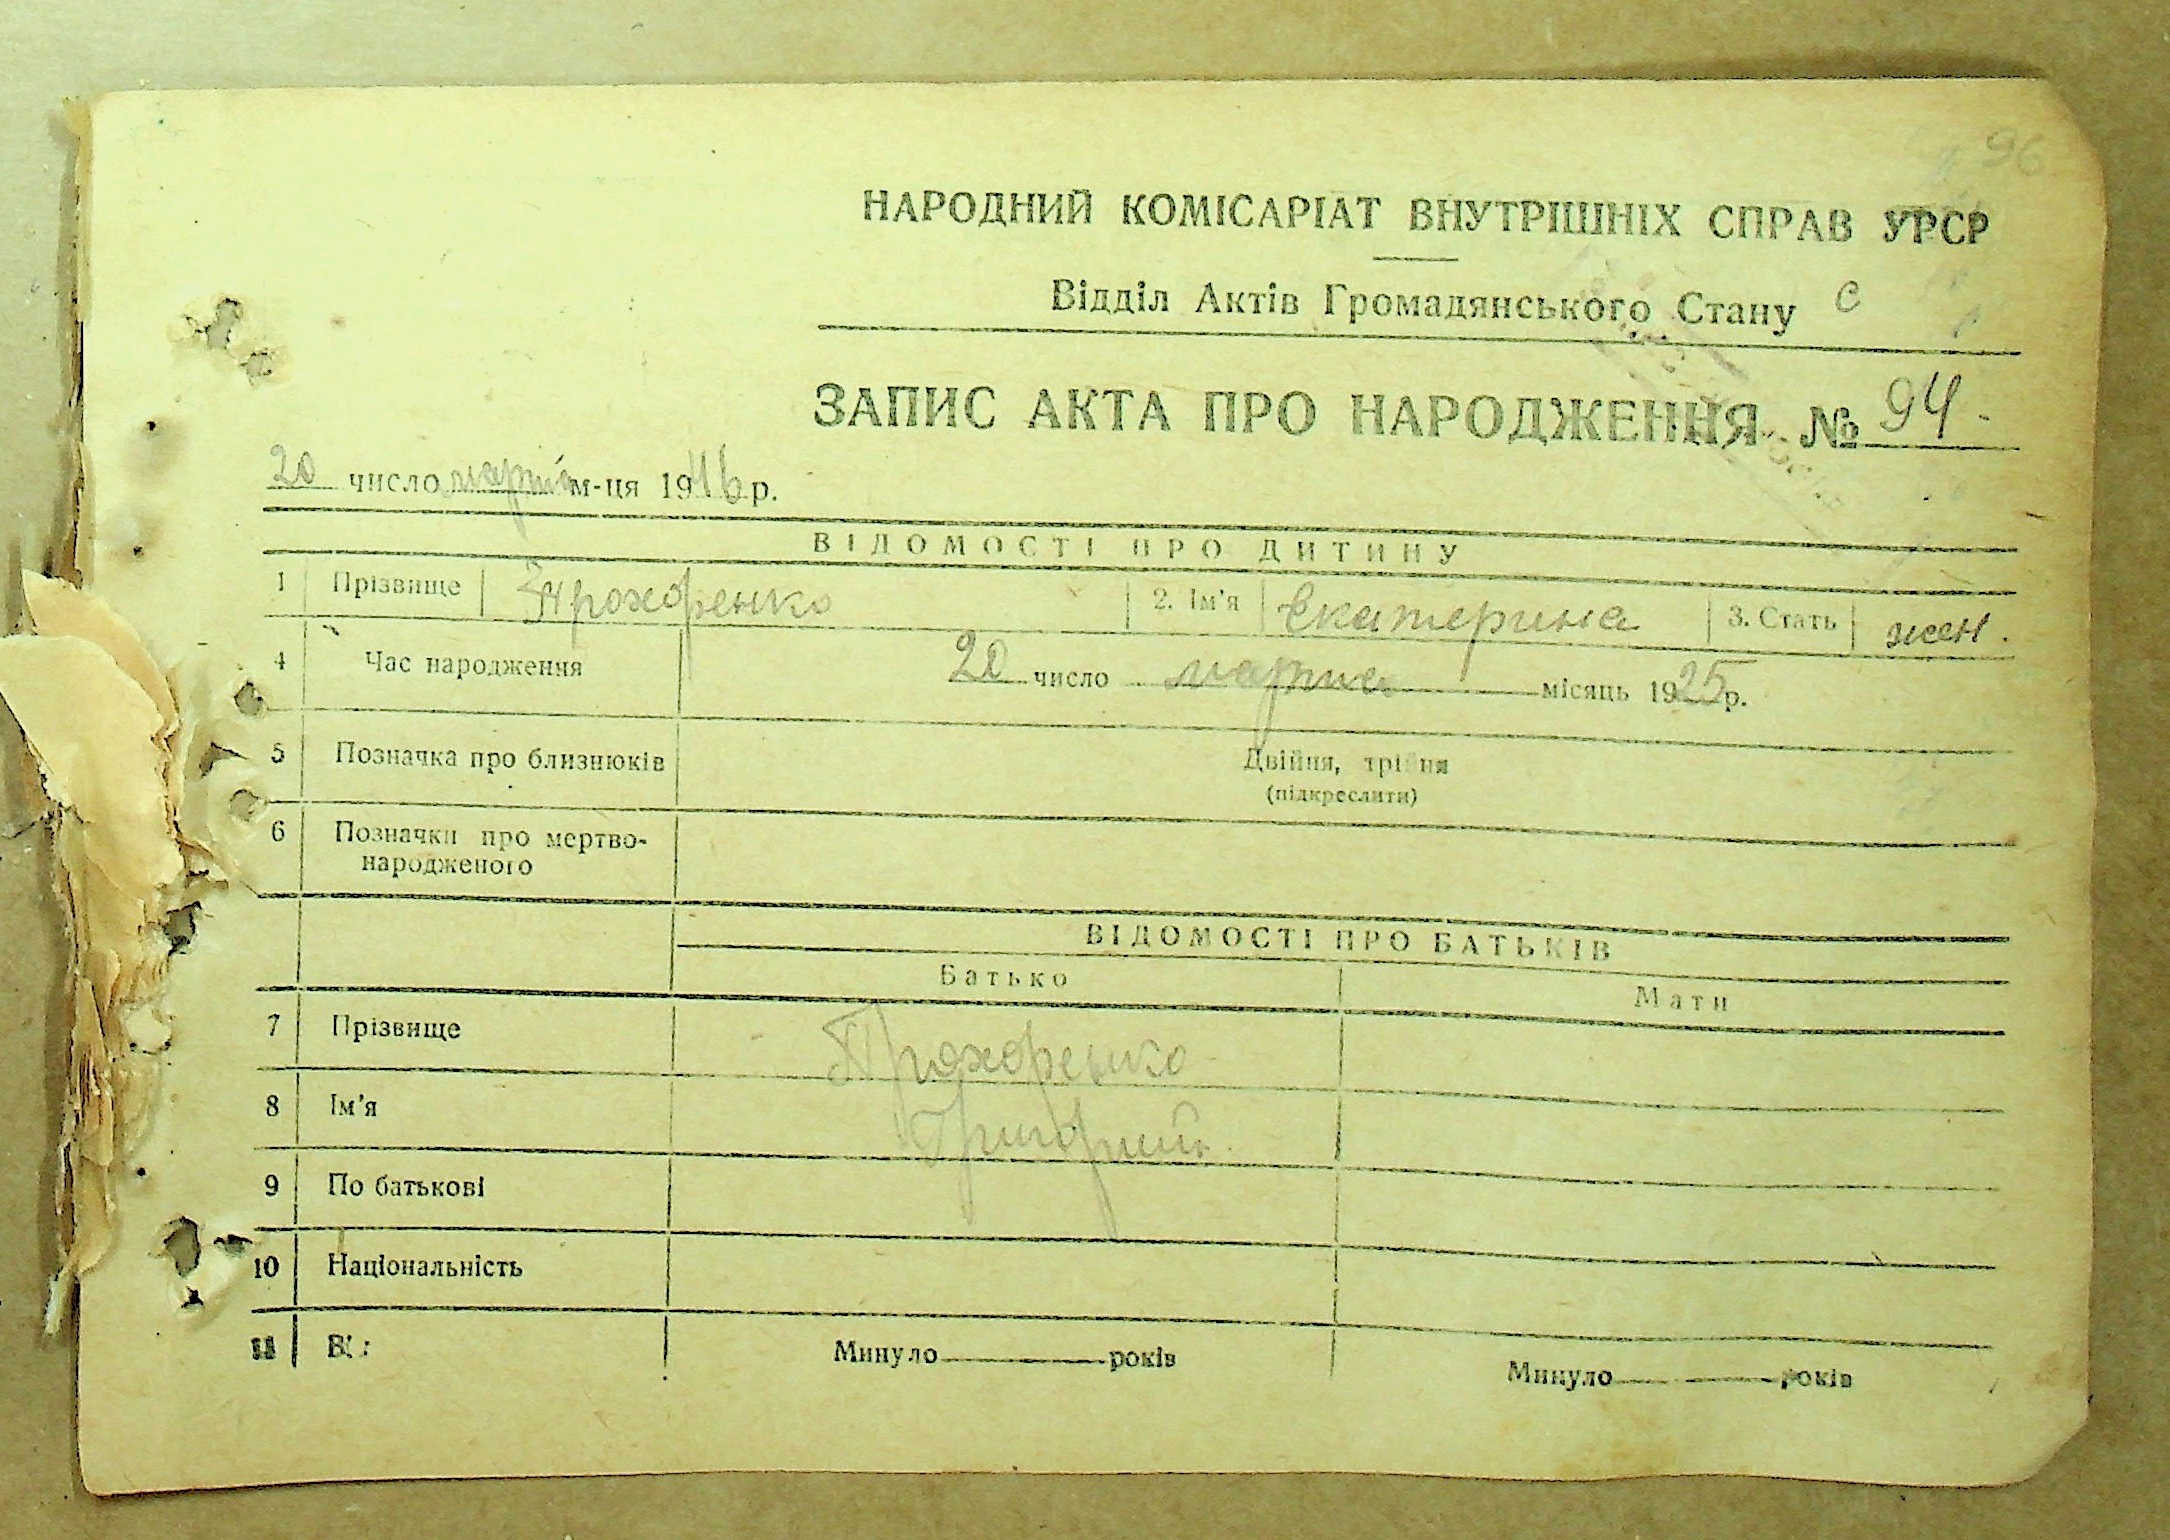 96
НАРОДНИЙ КОМІСАРІАТ ВНУТРІШНІХ СПРАВ УРСР
Відділ Актів Громадянського Стану с
ЗАПИС АКТА ПРО НАРОДЖЕННЯ № 94
20 число марта м-ця 1946 р.
ВІДОМОСТІ ПРО ДИТИНУ
1 Прізвище Прохоренко 2. Ім'я Екатерина 3. Стать жен.
4 Час народження 20 число марта місяць 1925 р.
5 Позначка про близнюків Двійня, трійня
(підкреслити)
6 Позначки про мертво-
народженого
ВІДОМОСТІ ПРО БАТЬКІВ
Батько Мати
7 Прізвище Прохоренко
8 Ім'я Григорий
9 По батькові
10 Національність
11 Минуло років Минуло років